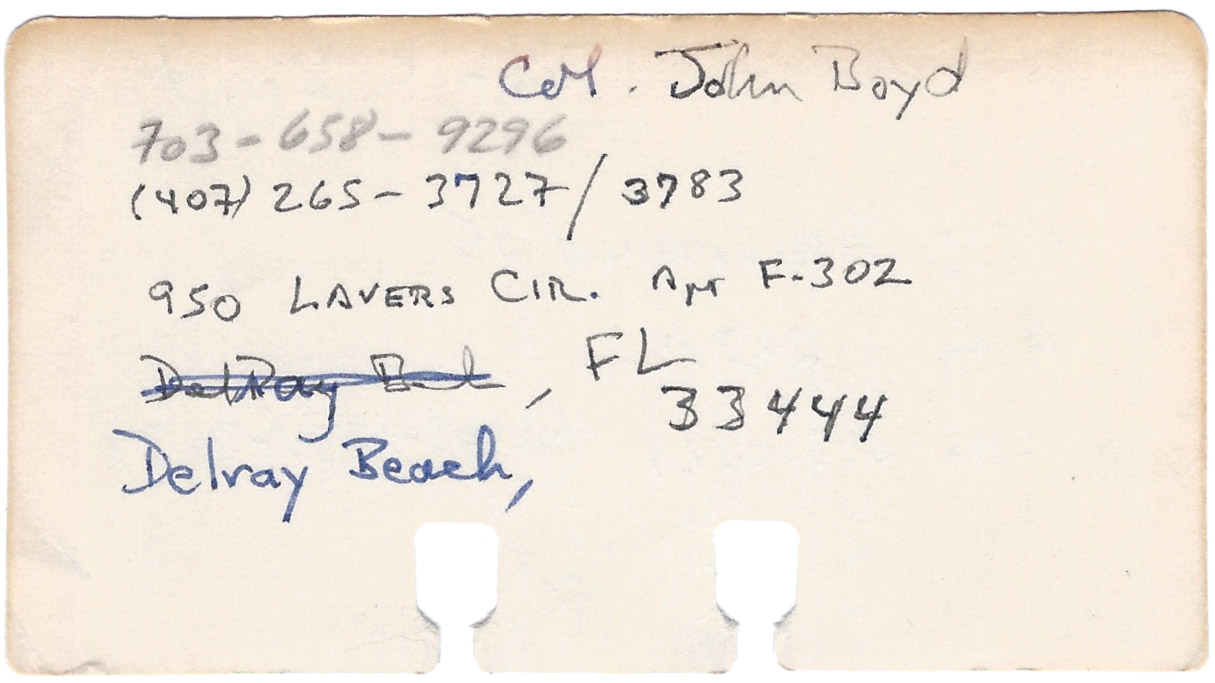 Col. John Boyd
703-658-9296
(407) 265-3727/3783
950 LAVERS CIR. Apt F-302
DelRay Bch, FL
33444
Delray Beach,